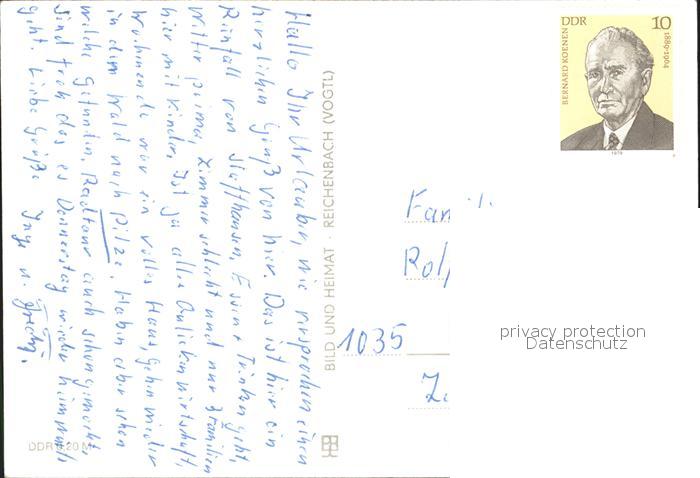 Hallo Ihr Urlauber, wie versprochen einen
herzlichen Gruß von hier. Das ist hier ein
Reinfall von Essen + Trinken geht,
Witter prima, Zimmer schlecht und nur 3 Familien
hier mit Kinder. Ist ja alles
Wochenende war ein volles Haus gehen wieder
in den Wald nach Pilze. Haben eben schon
welche gefunden. Radtour auch schon gemacht,
sind froh das es Donnerstag wieder heimwärts
geht. Liebe Grüße Inge u.
BILD UND HEIMAT · REICHENBACH (VOGTL)
DDR 0,20 M
DDR 10
BERNARD KOENEN
1889-1964
1979
Famil
Rolf
1035
privacy protection
Datenschutz